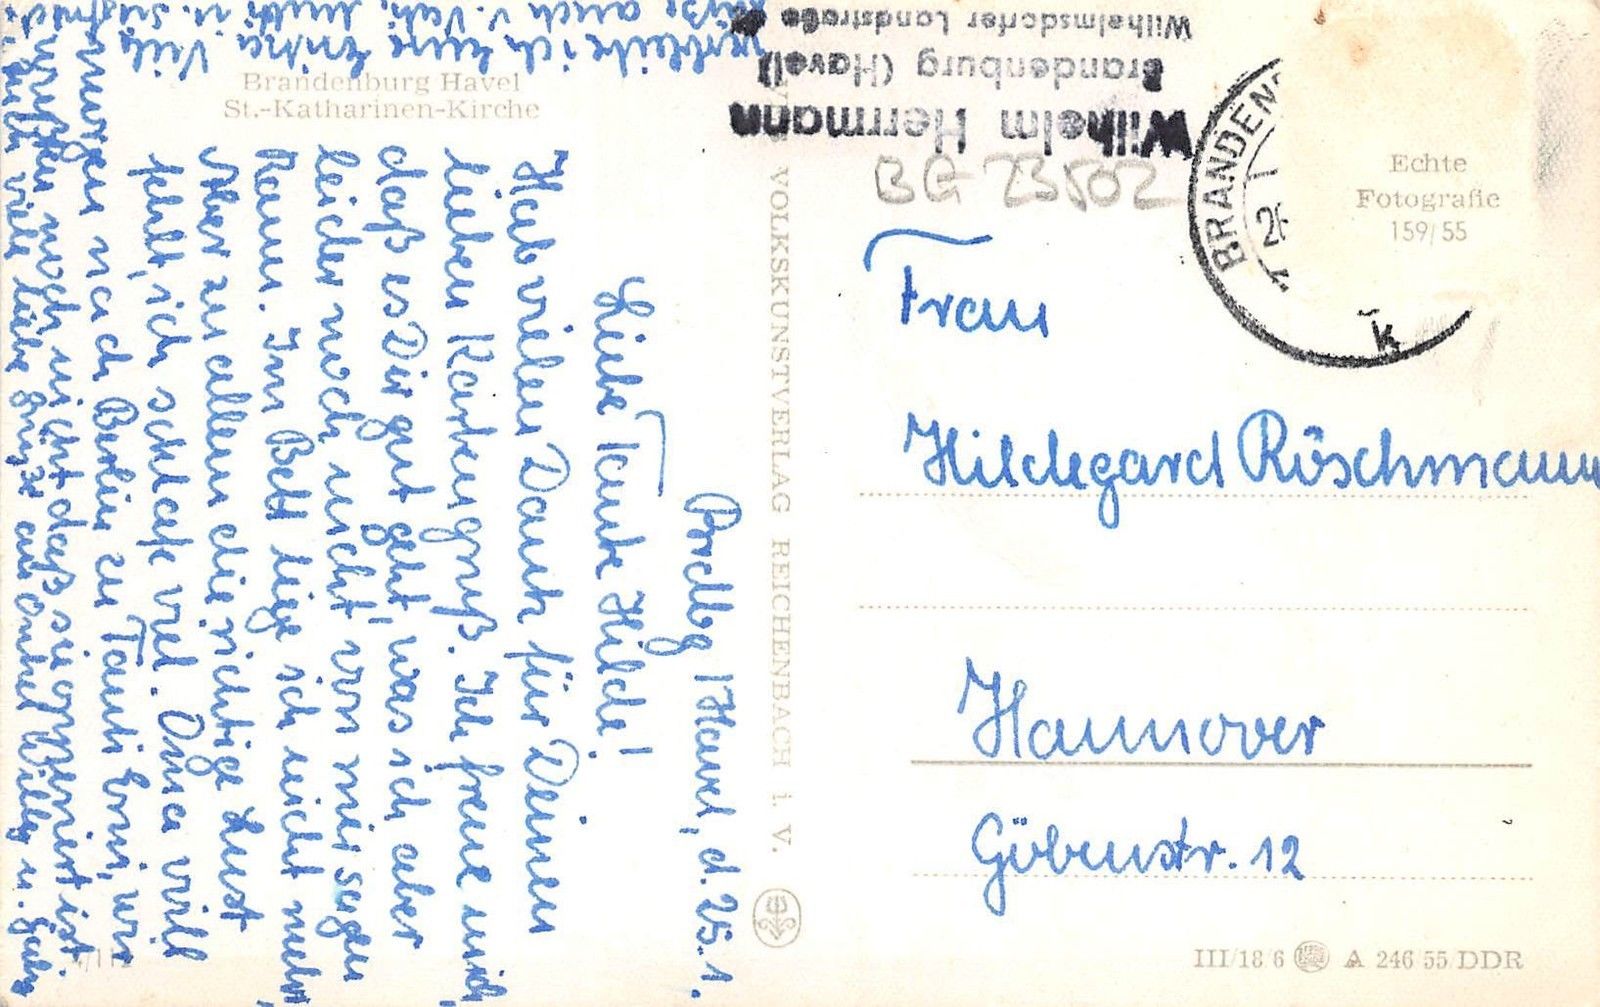 Brandenburg Havel
St.-Katharinen-Kirche
Wilhelm Hermann
Brandenburg (Havel)
Wilhelmsdorfer Landstraße
BG 23502
BRANDEN
Echte
Fotografie
159/55
k
Frau
Hildegard Röschmann
Hannover
Göbenstr. 12
VOLKSKUNSTVERLAG REICHENBACH i. V.
III/18/6 A 246/55/DDR
Brdbg/Havel, d. 25.1.
Liebe Tante Hilde!
Hab vielen Dank für Deinen
lieben Kartengruß. Ich freue mich,
daß es Dir gut geht, was ich aber
leider noch nicht von mir sagen
kann. Im Bett liege ich nicht mehr,
Aber zu allem die richtige Lust
fehlt, ich schlafe viel. Oma will
morgen nach Berlin zu Tante Erni, wir
wußten noch nicht daß sie operiert ist.
viele liebe Grüße an Onkel Willy u.
verbleibe ich Eure Erika. Viele
Grüße auch v. Vati, Mutti u.